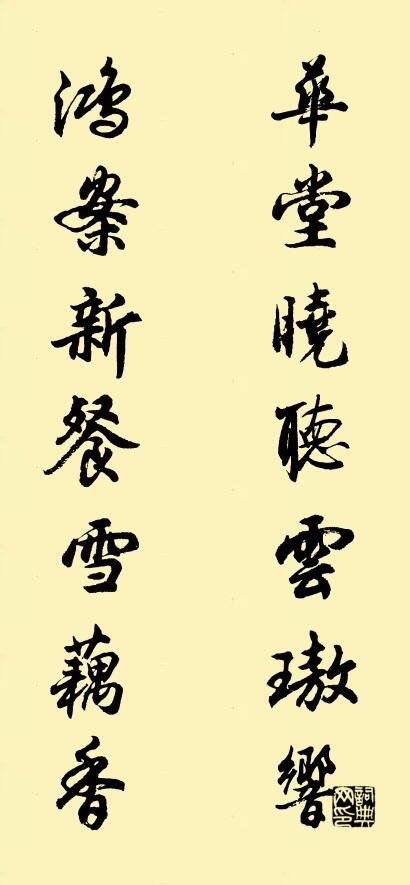 華堂曉聽雲璈響
鴻案新餐雪藕香
詞典網印